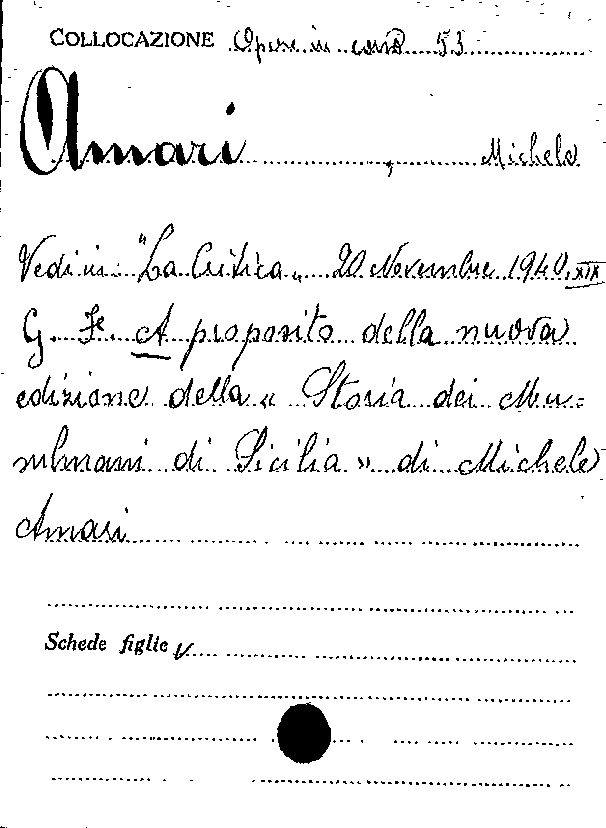 COLLOCAZIONE Opere in corso 53
Amari, Michele
Vedi in "La Critica" 20 Novembre 1940. XIX
G. Fe. A proposito della nuova
edizione della « Storia dei Mu=
sulmani di Sicilia » di Michele
Amari
Schede figlie